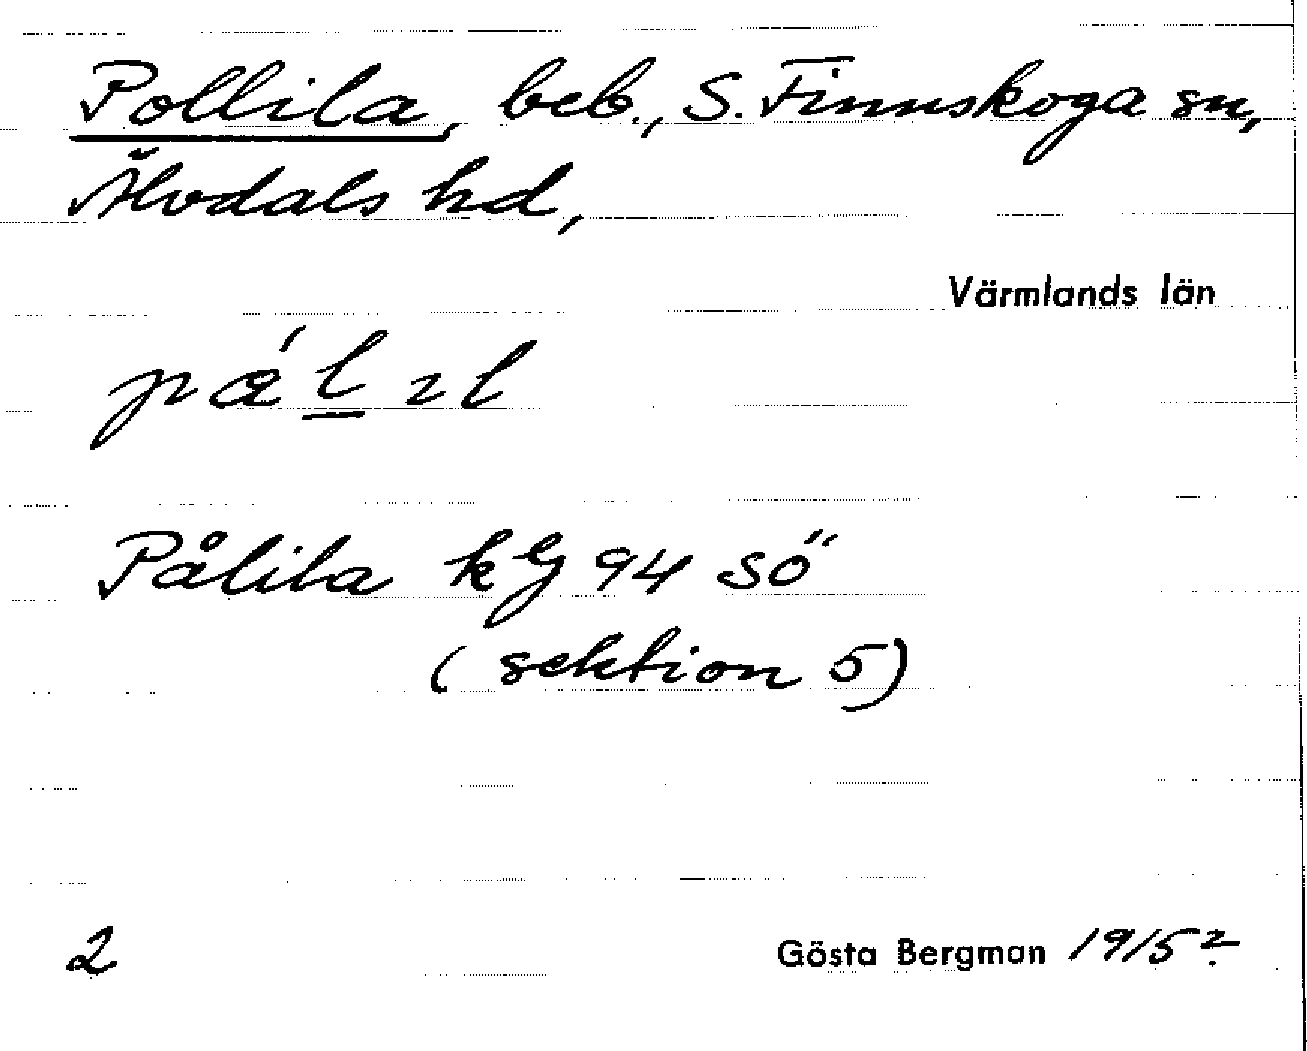 Pollila, beb., S. Finnskoga sn,
Älvdals hd,
Värmlands län
Pålila kG 94 sö
(sektion 5)
2 Gösta Bergman 1915?